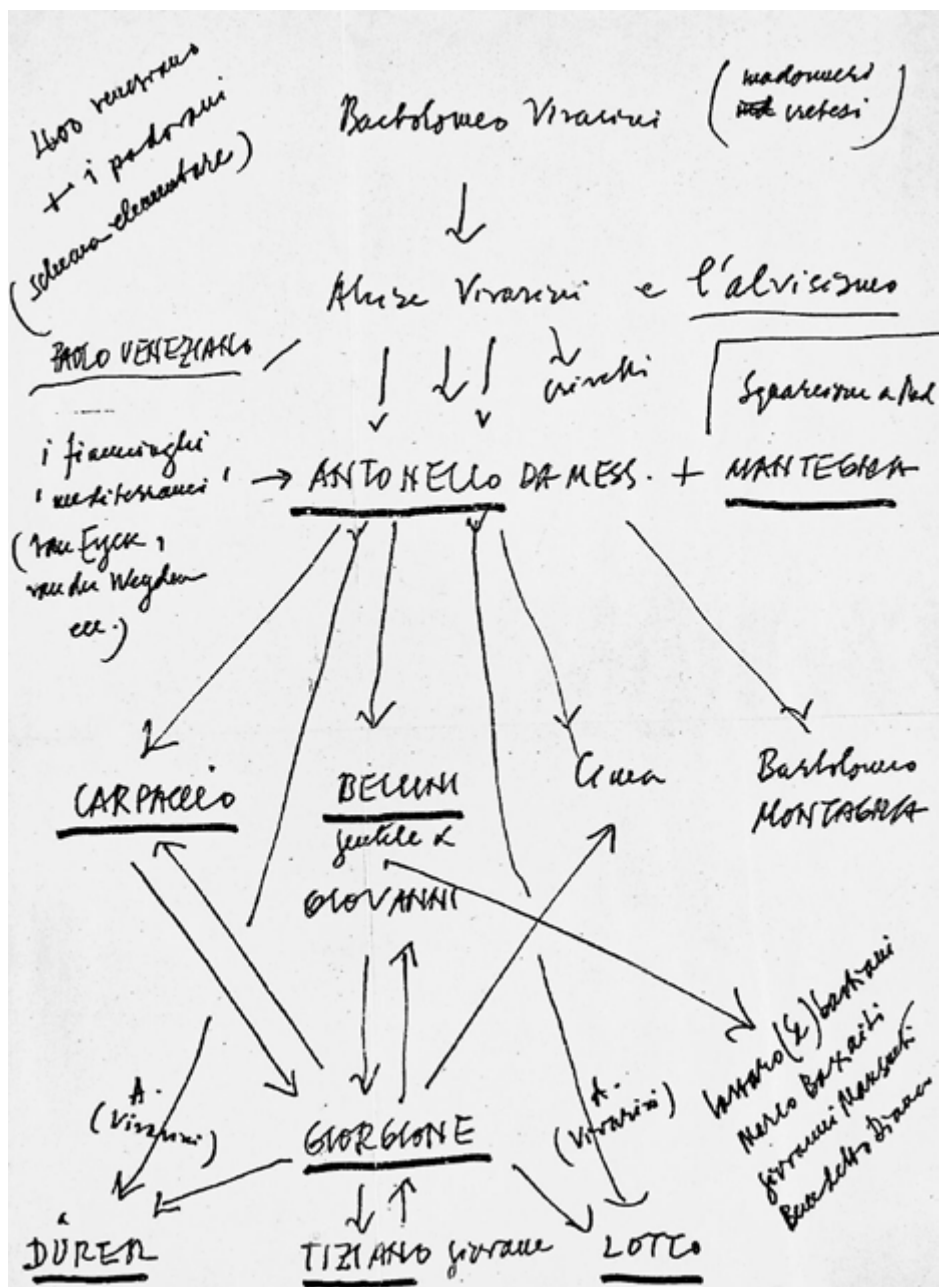 400 veneziano
+ i padovani
(schema elementare)
Bartolomeo Vivarini
(madonneri
cretesi)
Alvise Vivarini e l'alvisismo
PAOLO VENEZIANO
crivelli
Squarcione a Pad
i fiamminghi
'mediterranei'
(van Eyck,
van der Weyden
ecc.)
→ ANTONELLO DA MESS. + MANTEGNA
CARPACCIO
BELLINI
gentile &
GIOVANNI
Cima
Bartolomeo
MONTAGNA
A.
(Vivarini)
A.
(Vivarini)
lazzaro (&) bastiani
Marco Basaiti
giovanni Mansueti
Benedetto Diana
GIORGIONE
DÜRER
TIZIANO giovane
LOTTO